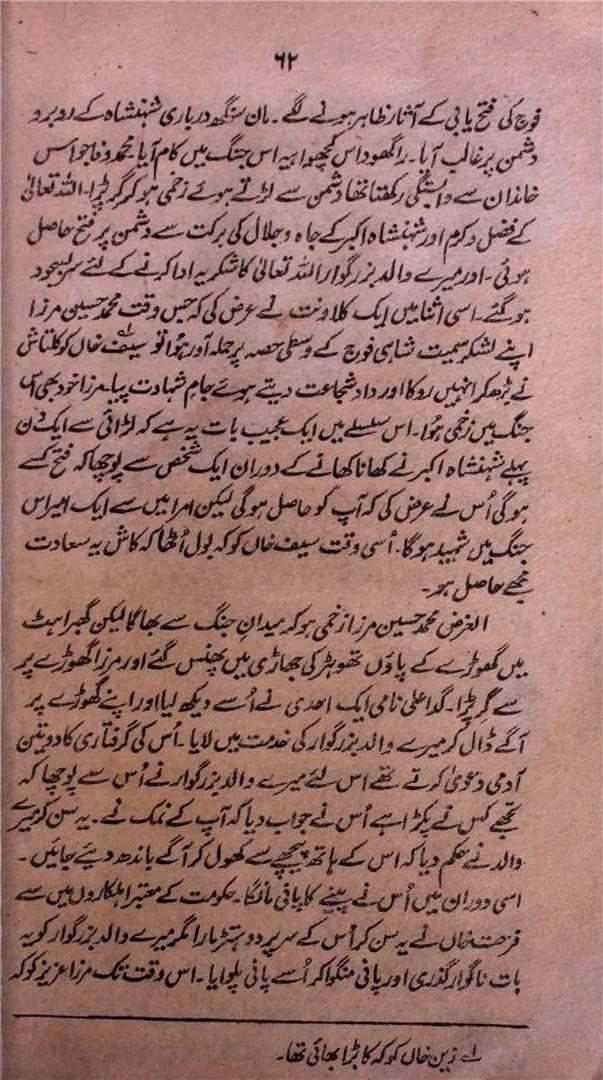 ۶۲
فوج کی فتح یابی کے آثار ظاہر ہونے لگے۔ مان سنگھ درباری شہنشاہ کے روبرو
دشمن پر غالب آیا۔ راگھو داس کچھواہہ اس جنگ میں کام آیا۔ محمد وفا جو اس
خاندان سے وابستگی رکھتا تھا دشمن سے لڑتے ہوئے زخمی ہو کر گر پڑا۔ اللہ تعالیٰ
کے فضل و کرم اور شہنشاہ اکبر کے جاہ و جلال کی برکت سے دشمن پر فتح حاصل
ہوئی۔ اور میرے والد بزرگوار اللہ تعالیٰ کا شکریہ ادا کرنے کے لئے سربسجود
ہو گئے۔ اسی اثنا میں ایک کلاونت نے عرض کی کہ جس وقت محمد حسین مرزا
اپنے لشکر سمیت شاہی فوج کے وسطی حصہ پر حملہ آور ہُوا تو سیف خاں کوکلتاش ۱ے
نے بڑھ کر انہیں روکا اور داد شجاعت دیتے ہوئے جامِ شہادت پیا۔ مرزا خود بھی اس
جنگ میں زخمی ہُوا۔ اس سلسلے میں ایک عجیب بات یہ ہے کہ لڑائی سے ایک دن
پہلے شہنشاہ اکبر نے کھانا کھانے کے دوران ایک شخص سے پوچھا کہ فتح کسے
ہو گی اُس نے عرض کی کہ آپ کو حاصل ہو گی لیکن امرا میں سے ایک امیر اس
جنگ میں شہید ہو گا۔ اُسی وقت سیف خاں کوکہ بول اُٹھا کہ کاش یہ سعادت
مجھے حاصل ہو۔
الغرض محمد حسین مرزا زخمی ہو کر میدانِ جنگ سے بھاگا لیکن گھبراہٹ
میں گھوڑے کے پاؤں تھوہڑ کی جھاڑی میں پھنس گئے اور مرزا گھوڑے پر
سے گر پڑا۔ گدا علی نامی ایک احدی نے اُسے دیکھ لیا اور اپنے گھوڑے پر
آگے ڈال کر میرے والد بزرگوار کی خدمت میں لایا۔ اُس کی گرفتاری کا دو تین
آدمی دعویٰ کرتے تھے اس لئے میرے والد بزرگوار نے اُس سے پوچھا کہ
تجھے کس نے پکڑا ہے اُس نے جواب دیا کہ آپ کے نمک نے۔ یہ سن کر میرے
والد نے حکم دیا کہ اس کے ہاتھ پیچھے سے کھول کر آگے باندھ دیئے جائیں۔
اسی دوران میں اُس نے پینے کا پانی مانگا۔ حکومت کے معتبر اہلکاروں میں سے
فرحت خاں نے یہ سن کر اُس کے سر پر دو ہتڑ مارا مگر میرے والد بزرگوار کو یہ
بات ناگوار گذری اور پانی منگوا کر اُسے پانی پلوایا۔ اس وقت تک مرزا عزیز کوکہ
۱ے زین خاں کوکہ کا بڑا بھائی تھا۔